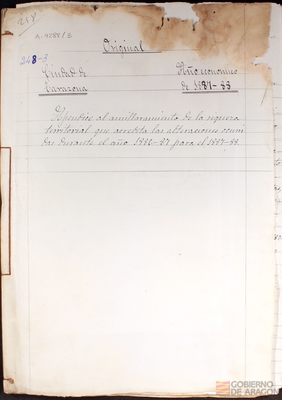 258
A-4288/3
Original
248-3
Ciudad de
Tarazona
Año económico
de 1887-88
Apendice al amillaramiento de la riqueza
territorial que acredita las alteraciones ocurri
das durante el año 1886-87 para el 1887-88.
GOBIERNO
DE ARAGON